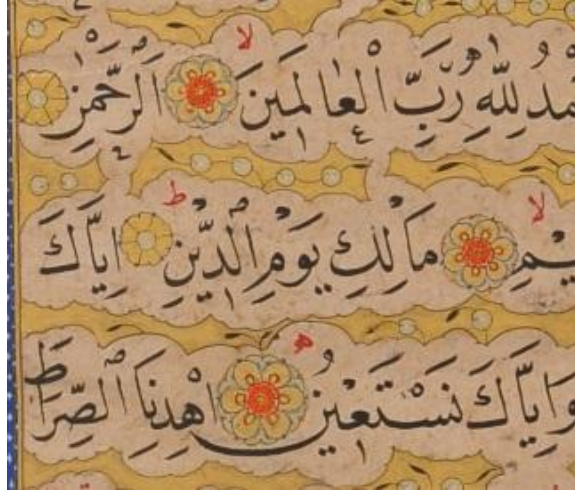 مْدُ لِلّٰهِ رَبِّ الْعَالَمِينَ لا اَلرَّحْمٰنِ
يمِ لا مَالِكِ يَوْمِ الدِّينِ ط اِيَّاكَ
وَاِيَّاكَ نَسْتَعِينُ اِهْدِنَا الصِّرَاطَ